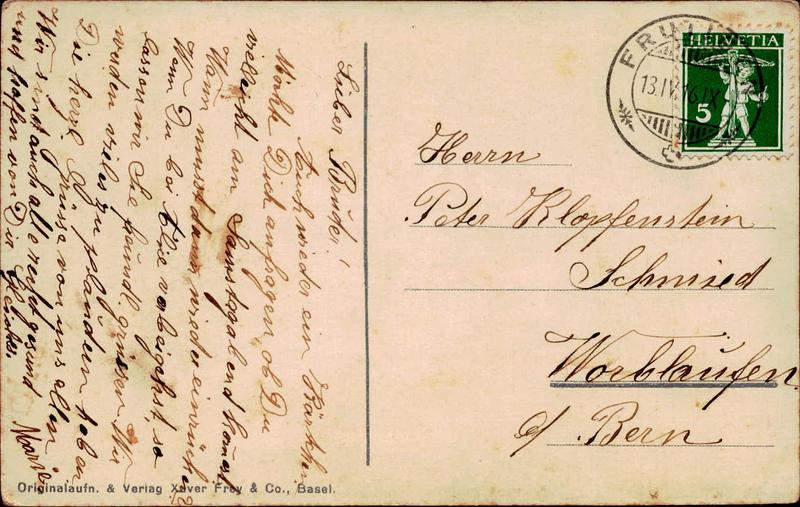 Lieber Bruder!
Auch wieder ein Kärtchen
Möchte Dich anfragen, ob Du
vielleicht am Samstagabend komst
Wann musst dann wieder einrücken?
Wenn Du bei Elise vorbeigehst, so
lassen wir Sie freundl. grüssen. Wir
werden vieles zu plaudern haben
Die herzl. Grüsse von uns allen
Wir sind auch alle recht gesund
und hoffen von Dir Gleiches.
Marie
HELVETIA
5
FRUTIGEN
13.IV.16.IX
Herrn
Peter Klopfenstein
Schmied
Worblaufen
b/ Bern
Originalaufn. & Verlag Xaver Frey & Co., Basel.